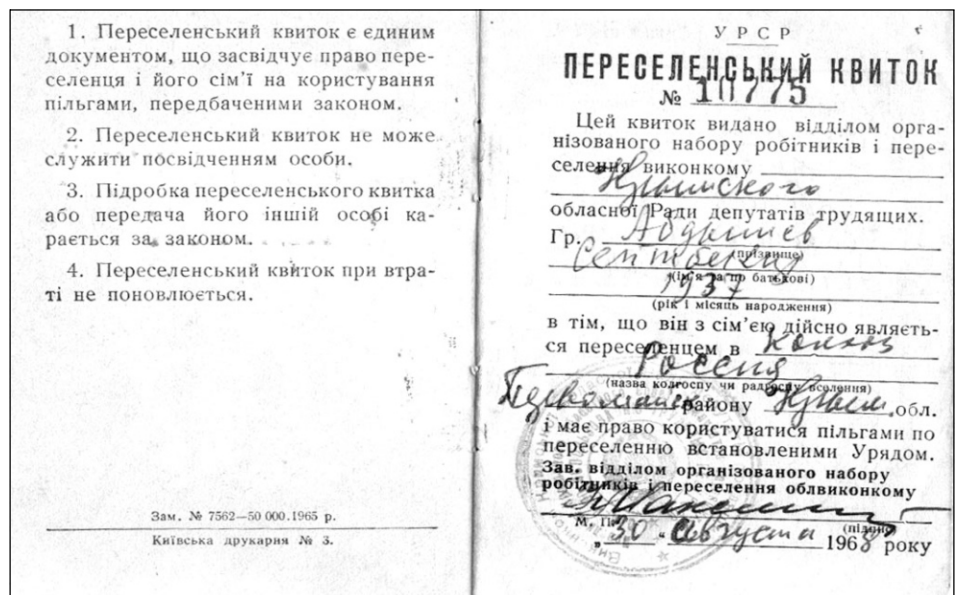 1. Переселенський квиток є єдиним
документом, що засвідчує право пере-
селенця і його сім’ї на користування
пільгами, передбаченими законом.
2. Переселенський квиток не може
служити посвідченням особи.
3. Підробка переселенського квитка
або передача його іншій особі ка-
рається за законом.
4. Переселенський квиток при втра-
ті не поновлюється.
Зам. № 7562—50 000.1965 р.
Київська друкарня № 3.
УРСР
ПЕРЕСЕЛЕНСЬКИЙ КВИТОК
№ 10775
Цей квиток видано відділом орга-
нізованого набору робітників і пере-
селення виконкому
Крымского
обласної Ради депутатів трудящих.
Гр. 
(прізвище)
(ім’я та по батькові)
1937
(рік і місяць народження)
в тім, що він з сім’єю дійсно являєть-
ся переселенцем в колхоз
Россия
(назва колгоспу чи радгоспу вселення)
району Крым. обл.
і має право користуватися пільгами по
переселенню встановленими Урядом.
Зав. відділом організованого набору
робітників і переселення облвиконкому
М. П. (підпис)
„30“ августа 1968 року